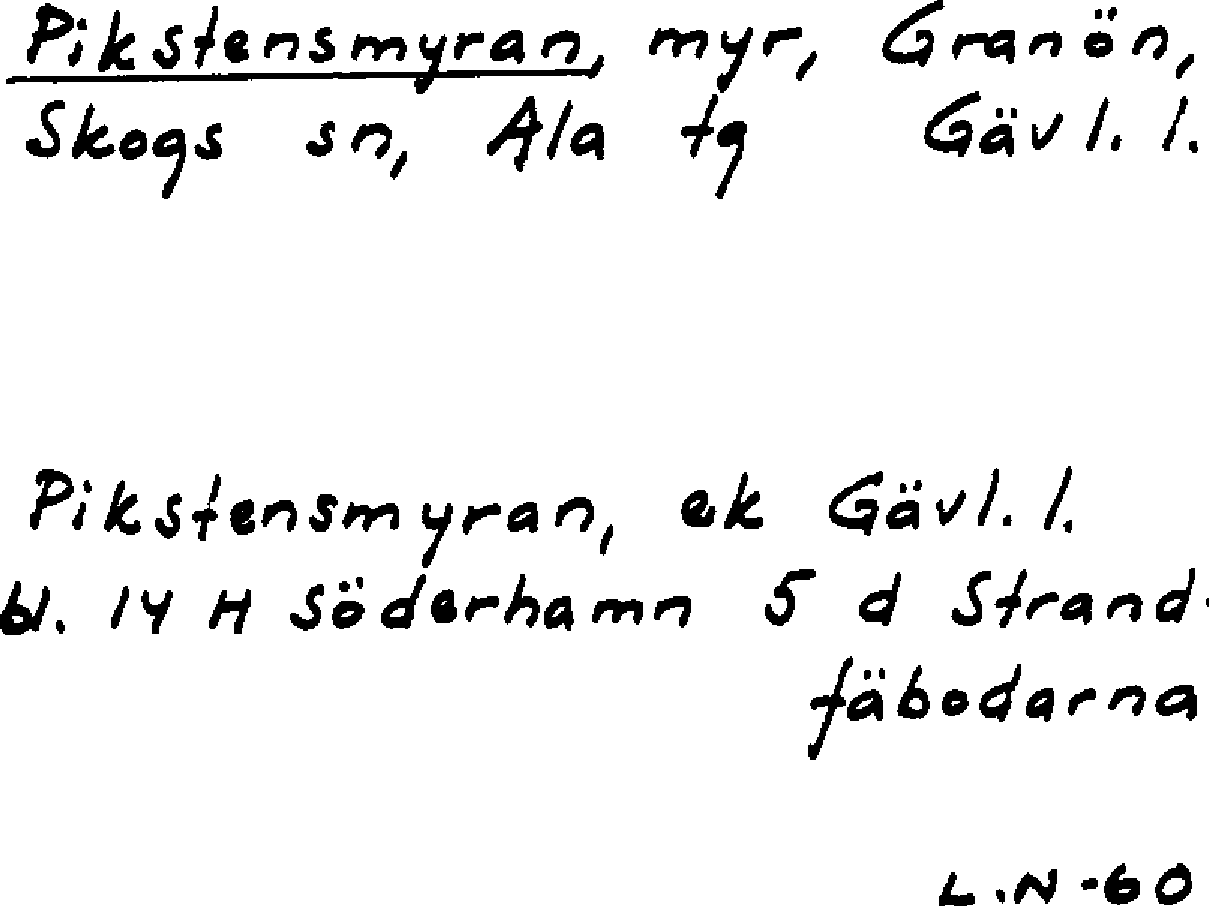 Pikstensmyran, myr, Granön,
Skogs sn, Ala tg Gävl. l.
Pikstensmyran, ek Gävl. l.
bl. 14 H Söderhamn 5 d Strand-
fäbodarna
L.N -60